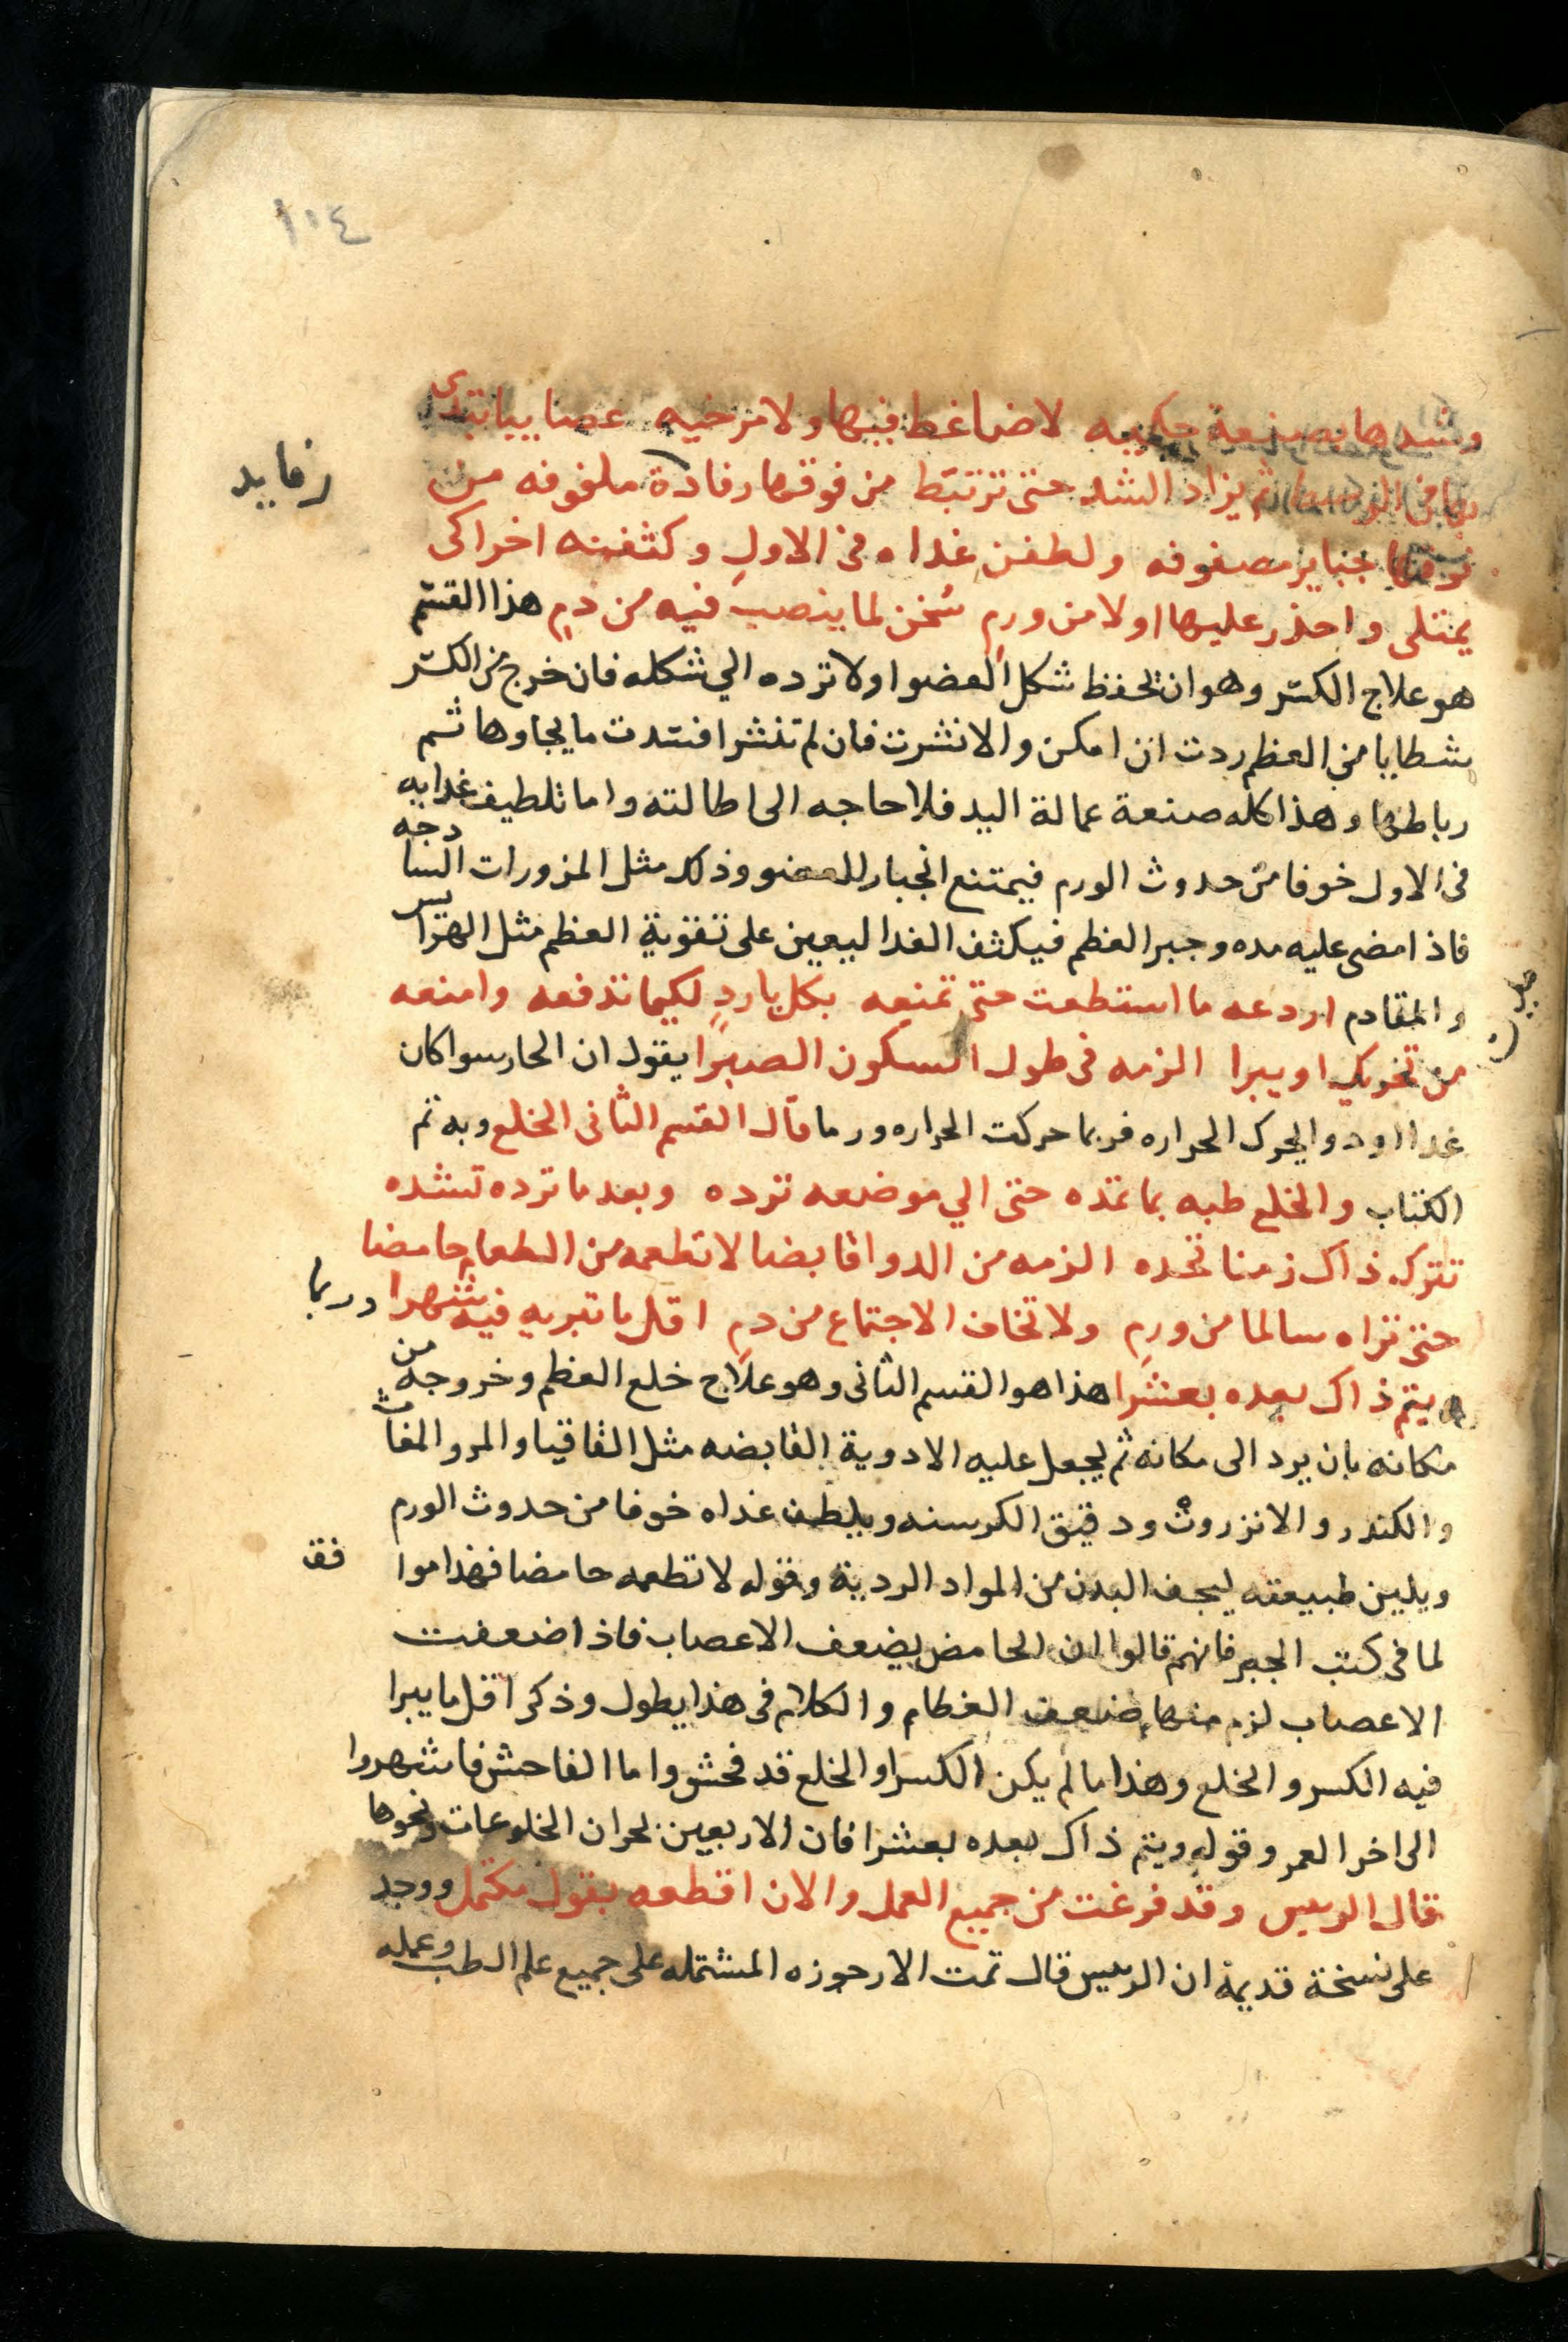 ١٠٤
وشدها بصنعة حكيمه لاضاغط فيها ولا مرخيه عصايبا تبتدى
بها من الوسط ثم يزاد الشد حتى ترتبط من فوقها رفادة ملفوفه من
رفايد
فوقها جباير مصفوفه ولطفن غداه فى الاول وكثفنه اخرا كى
يمتلى واحذر عليها اولا من ورم سخن لما ينصب فيه من دم هذا القسم
هو علاج الكسر وهو ان تحفظ شكل العضو اولا ترده الي شكله فان خرج من الكسر
شظايا من العظم ردت ان امكن والا نشرت فان لم تنشر افسدت ما يجاوها ثم
رباطها وهذا كله صنعة عمالة اليد فلا حاجه الى اطالته واما تلطيف غدايه
فى الاول خوفا من حدوث الورم فيمتنع انجبار العضو وذلك مثل المزورات السادجه
فاذا مضى عليه مده وجبر العظم فيكثف الغدا ليعين على تقوية العظم مثل الهرايس
والمقادم اردعه ما استطعت حتى تمنعه بكل بارد لكيما تدفعه وامنعه
من تحريك او يبرا الزمه فى طول السكون الصبرا يقول ان الحار سوا كان
غدا او دوا يحرك الحراره فربما حركت الحراره ورما قال القسم الثانى الخلع وبه تم
الكتاب والخلع طبه بما تمده حتى الي موضعه ترده وبعد ما ترده تشده
تترك ذاك زمنا تحده الزمه من الدوا قابضا لا تطعمه من الطعام حامضا
حتى تراه سالما من ورم ولا تخاف الاجتماع من دم اقل ما تبريه فيه شهرا وربما
يتم ذاك بعده بعشرا هذا هو القسم الثانى وهو علاج خلع العظم وخروجه من
مكانه بان يرد الى مكانه ثم يجعل عليه الادوية القابضه مثل القاقيا والمر والمغاث
والكندر والانزروث ودقيق الكرسنه ويلطف غداه خوفا من حدوث الورم
ويلين طبيعته ليجف البدن من المواد الردية وقوله لا تطعمه حامضا فهذا موافق
لما فى كتب الجبر فانهم قالوا ان الحامض يضعف الاعصاب فاذا ضعفت
الاعصاب لزم منها ضعف العظام والكلام فى هذا يطول وذكر اقل ما يبرا
فيه الكسر والخلع وهذا ما لم يكن الكسر او الخلع قد فحش واما الفاحش فاشهروا
الى اخر العمر وقوله ويتم ذاك بعده بعشرا فان الاربعين بحران الخلوعات ونحوها
قال الريس وقد فرغت من جميع العمل والان اقطعه بقول مكتمل ووجد
على نسخة قديمة ان الريس قال تمت الارجوزه المشتمله على جميع علم الطب وعمله